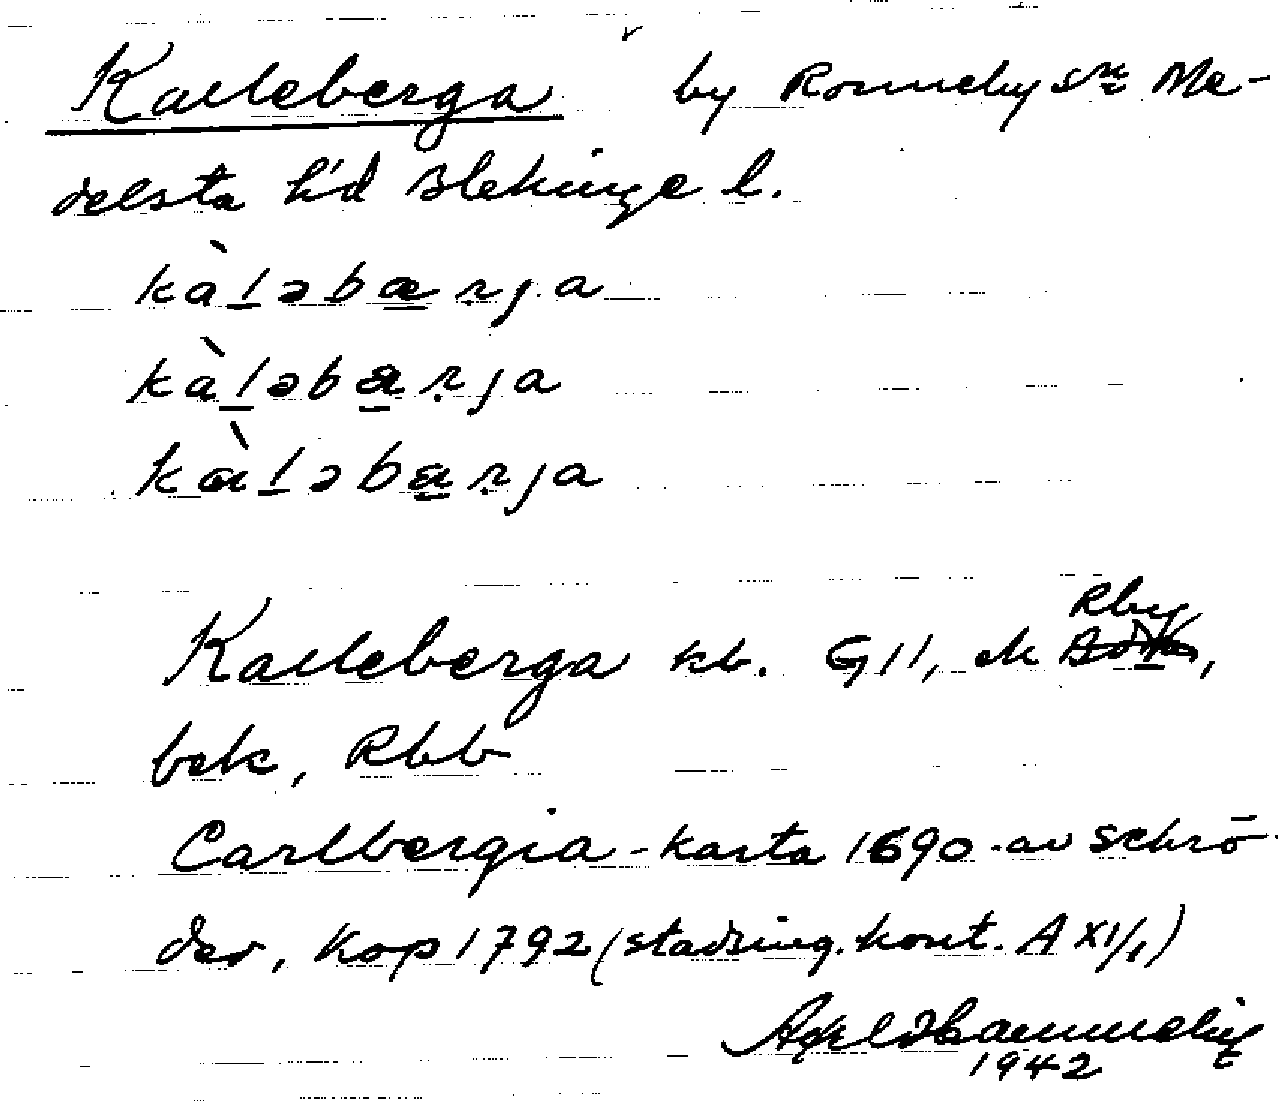 Kalleberga by Ronneby sn Me-
delsta h'd Blekinge l.
kàləbærja
kàləbarja
kàləbarja
Rby
Kalleberga kb. G11, ek
bek, Rbb
Carlbergia - karta 1690 av Schrö-
der, Kop 1792 (stadsing. kont. A XI/1)
1942